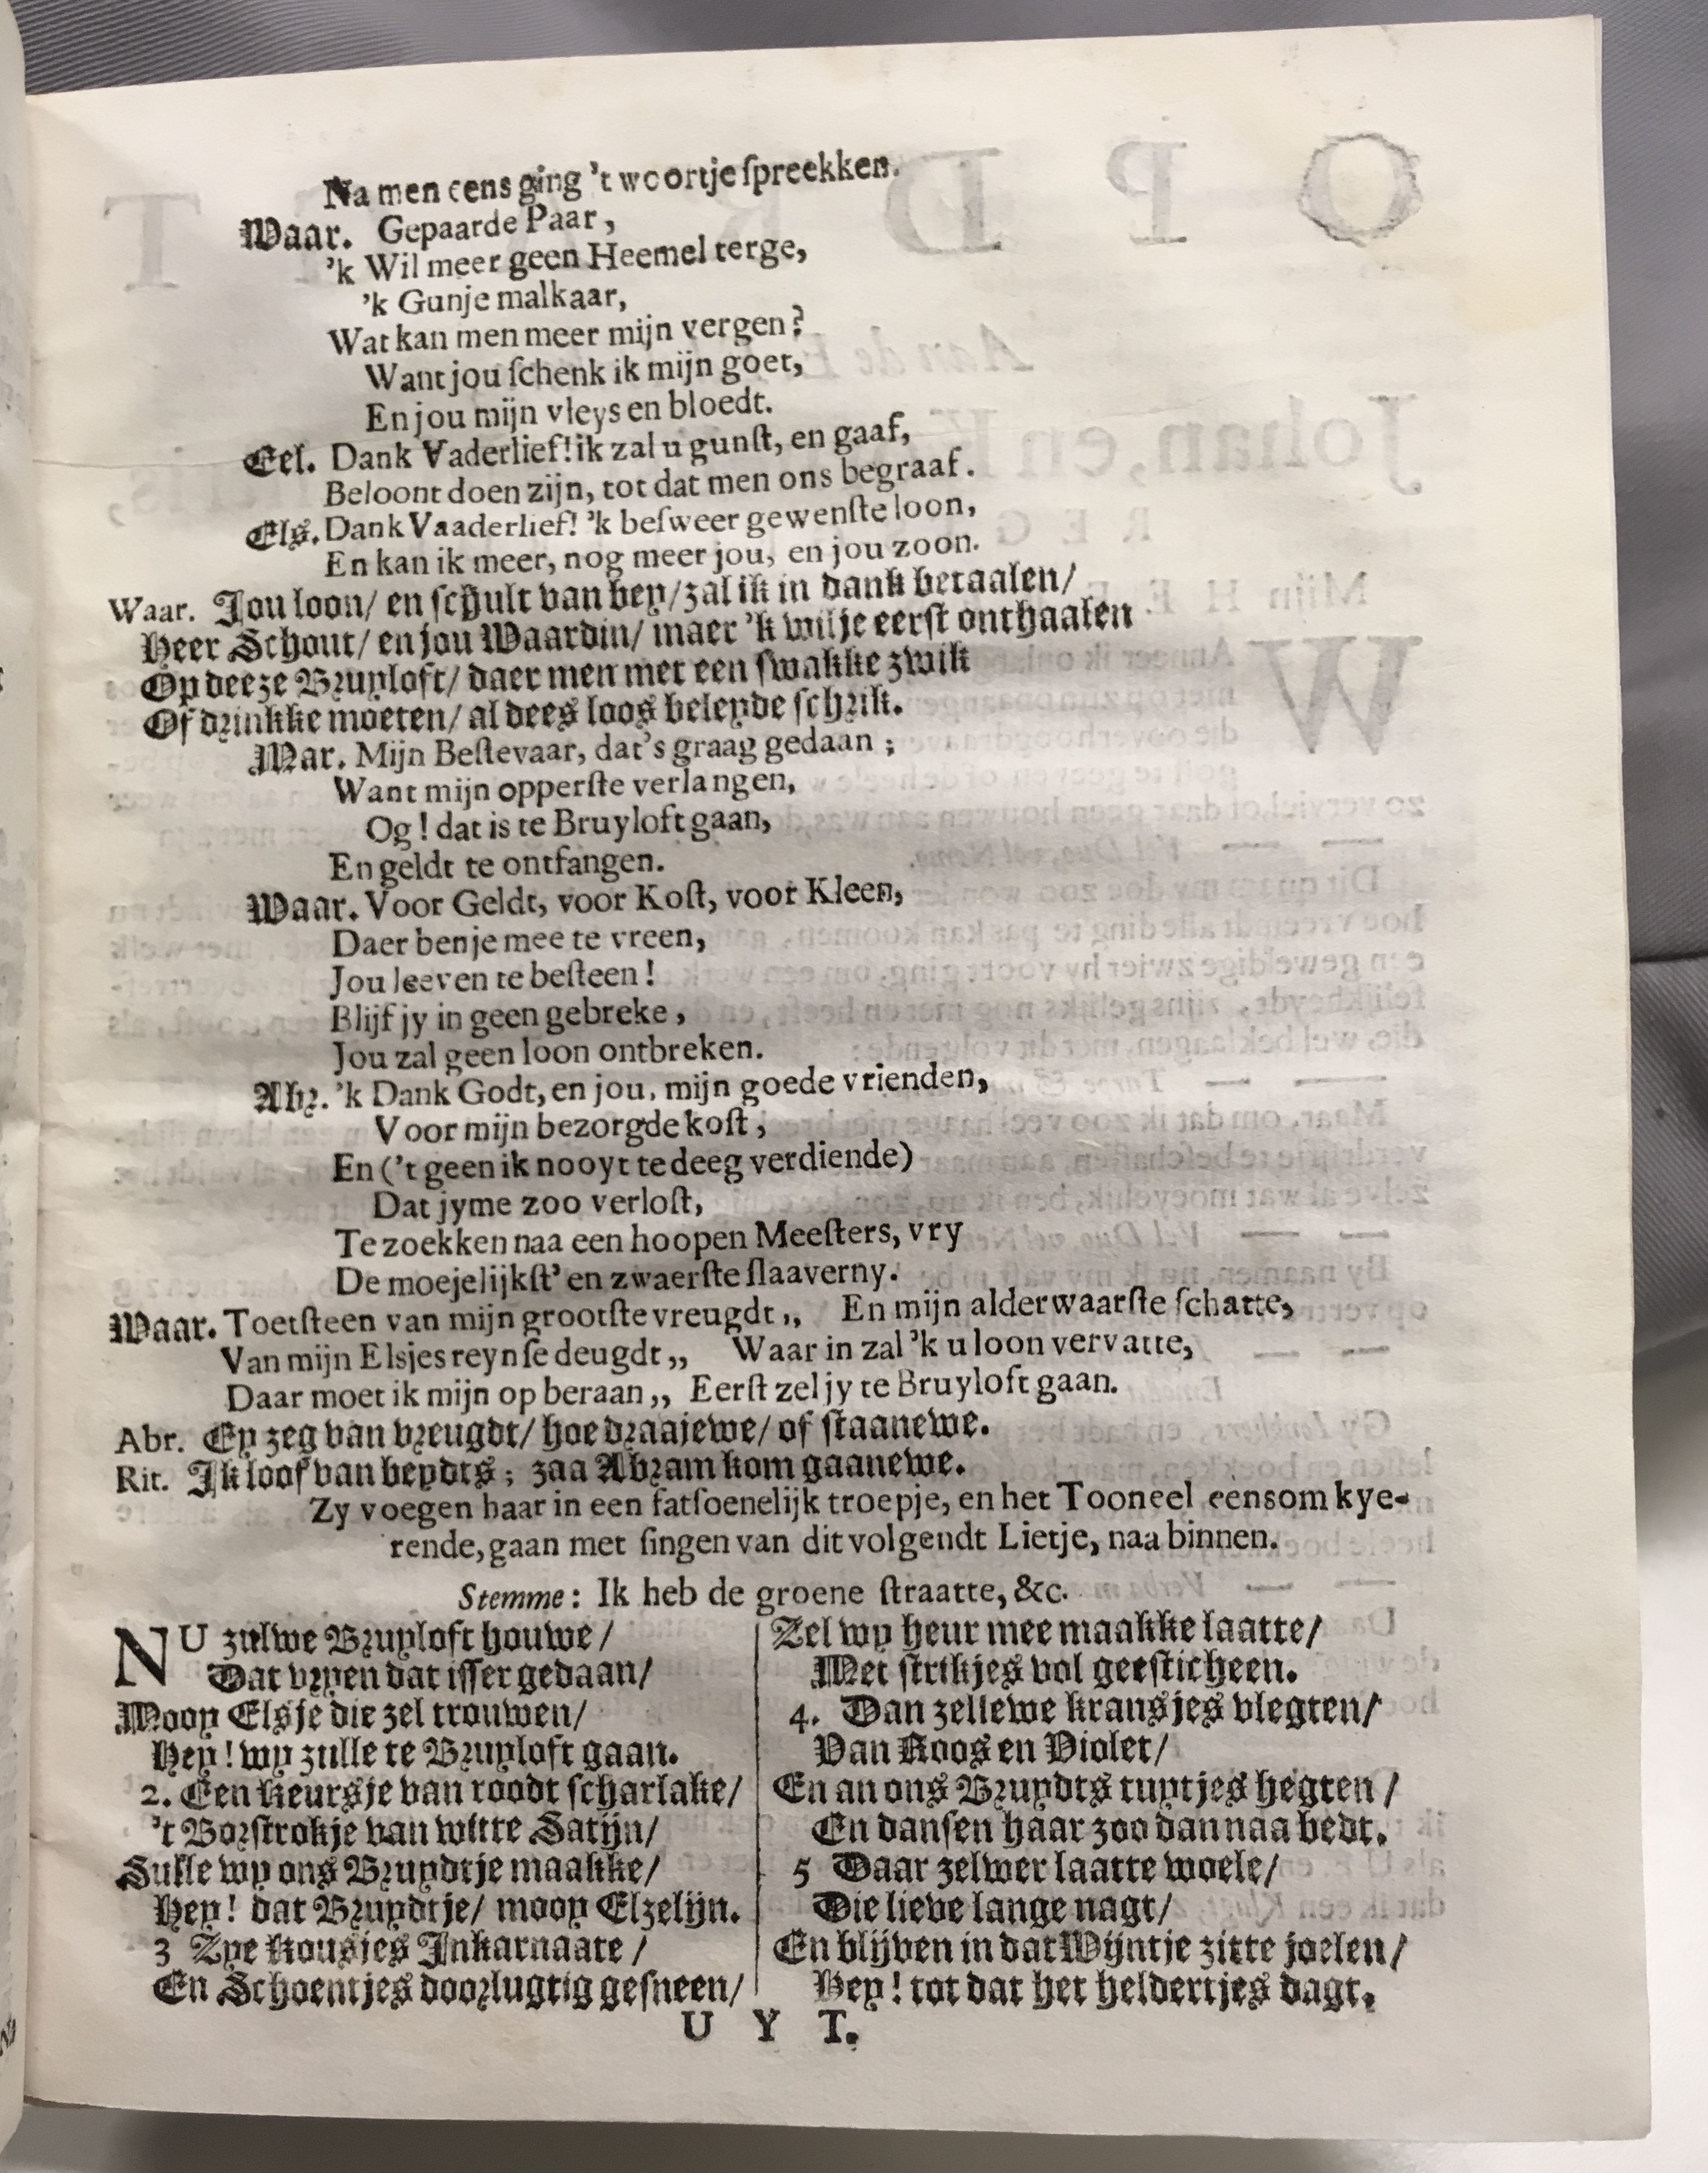 Na men eens ging 't woortje ſpreekken.
Waar. Gepaarde Paar,
'k Wil meer geen Heemel terge,
'k Gunje malkaar,
Wat kan men meer mijn vergen?
Want jou ſchenk ik mijn goet,
En jou mijn vleys en bloedt.
Eel. Dank Vaderlief! ik zal u gunſt, en gaaf,
Beloont doen zijn, tot dat men ons begraaf.
Els. Dank Vaaderlief! 'k beſweer gewenſte loon,
En kan ik meer, nog meer jou, en jou zoon.
Waar. Jou loon/ en ſchult van bey/ zal ik in dank betaalen/
Heer Schout/ en jou Waardin/ maer 'k wil je eerſt onthaalen
Op deeze Bruyloft/ daer men met een ſwakke zwik
Of drinkke moeten/ al dees loos beleyde ſchrik.
Mar. Mijn Beſtevaar, dat's graag gedaan;
Want mijn opperſte verlangen,
Og! dat is te Bruyloft gaan,
En geldt te ontfangen.
Waar. Voor Geldt, voor Koſt, voor Kleen,
Daer benje mee te vreen,
Jou leeven te beſteen!
Blijf jy in geen gebreke,
Jou zal geen loon ontbreken.
Abr. 'k Dank Godt, en jou, mijn goede vrienden,
Voor mijn bezorgde koſt,
En ('t geen ik nooyt te deeg verdiende)
Dat jyme zoo verloſt,
Te zoekken naa een hoopen Meeſters, vry
De moejelijkſt' en zwaerſte ſlaaverny.
Waar. Toetſteen van mijn grootſte vreugdt,, En mijn alderwaarſte ſchatte,
Van mijn Elsjes reynſe deugdt,, Waar in zal 'k u loon vervatte,
Daar moet ik mijn op beraan,, Eerſt zel jy te Bruyloft gaan.
Abr. Ey zeg van vreugdt/ hoe draajewe/ of ſtaanewe.
Rit. Ik loof van beydts; zaa Abram kom gaanewe.
Zy voegen haar in een fatſoenelijk troepje, en het Tooneel eensom kye-
rende, gaan met ſingen van dit volgendt Lietje, naa binnen.
Stemme: Ik heb de groene ſtraatte, &c.
NU zulwe Bruyloft houwe/
Dat vryen dat iſſer gedaan/
Mooy Elsje die zel trouwen/
Hey! wy zulle te Bruyloft gaan.
2. Een keursje van roodt ſcharlake/
't Borſtrokje van witte Satijn/
Sulle wy ons Bruydtje maakke/
Hey! dat Bruydtje/ mooy Elzelijn.
3 Zye kousjes Inkarnaate/
En Schoentjes doorlugtig geſneen/
Zel wy heur mee maakke laatte/
Met ſtrikjes vol geeſticheen.
4. Dan zellewe kransjes vlegten/
Van Roos en Violet/
En an ons Bruydts tuytjes hegten/
En danſen haar zoo dan naa bedt.
5 Daar zelwer laatte woele/
Die lieve lange nagt/
En blijven in dat Wijntje zitte joelen/
Hey! tot dat het heldertjes dagt.
U Y T.